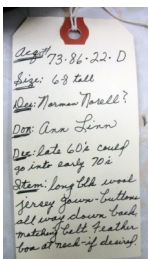 Acq# 73.86.22.D
Size: 68 tall
Des: Norman Norell?
Don: Ann Linn
Dec: late 60's could
go into early 70's
Item: long blk wool
jersey gown-buttons
all way down back,
matching belt Feather
boa at neck if desired.